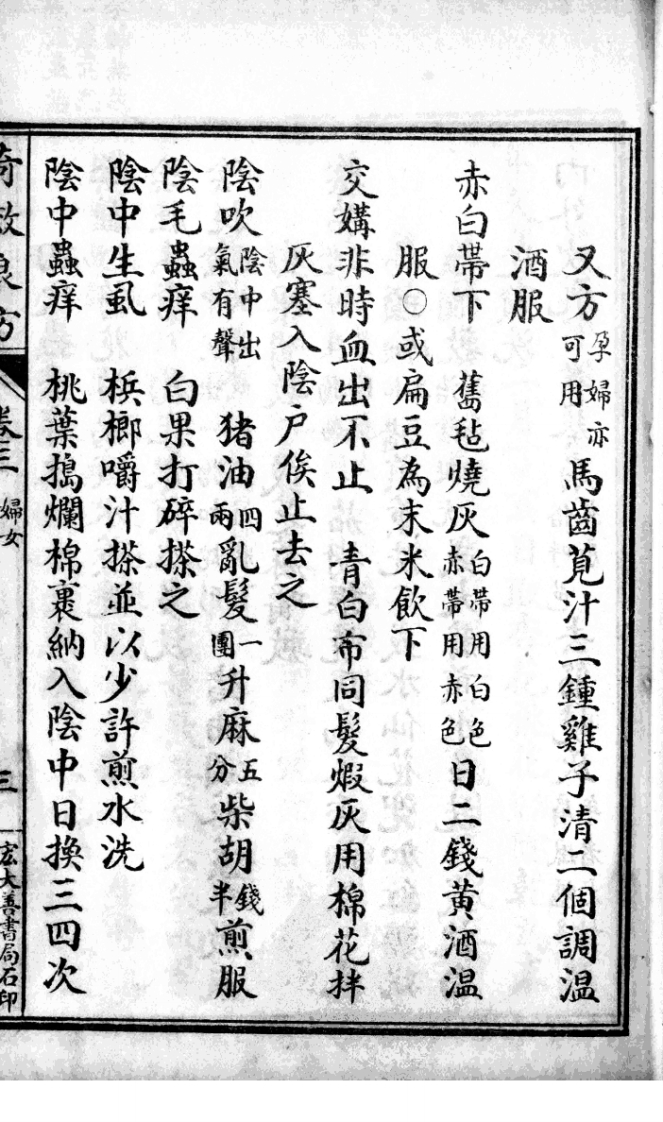 又方孕婦亦可用馬齒莧汁三鍾雞子清二個調温
酒服
赤白帶下　舊毡燒灰白帶用白色赤帶用赤色日二錢黄酒温
服○或扁豆為末米飲下
交媾非時血出不止　青白布同髮煆灰用棉花拌
灰塞入陰户俟止去之
陰吹陰中出氣有聲　猪油四兩亂髮一團升麻五分柴胡錢半煎服
陰毛蟲痒　白果打碎搽之
陰中生虱　梹榔嚼汁搽並以少許煎水洗
陰中蟲痒　桃葉搗爛棉裹納入陰中日換三四次
奇效良方　卷三　婦女　三　宏大善書局石印